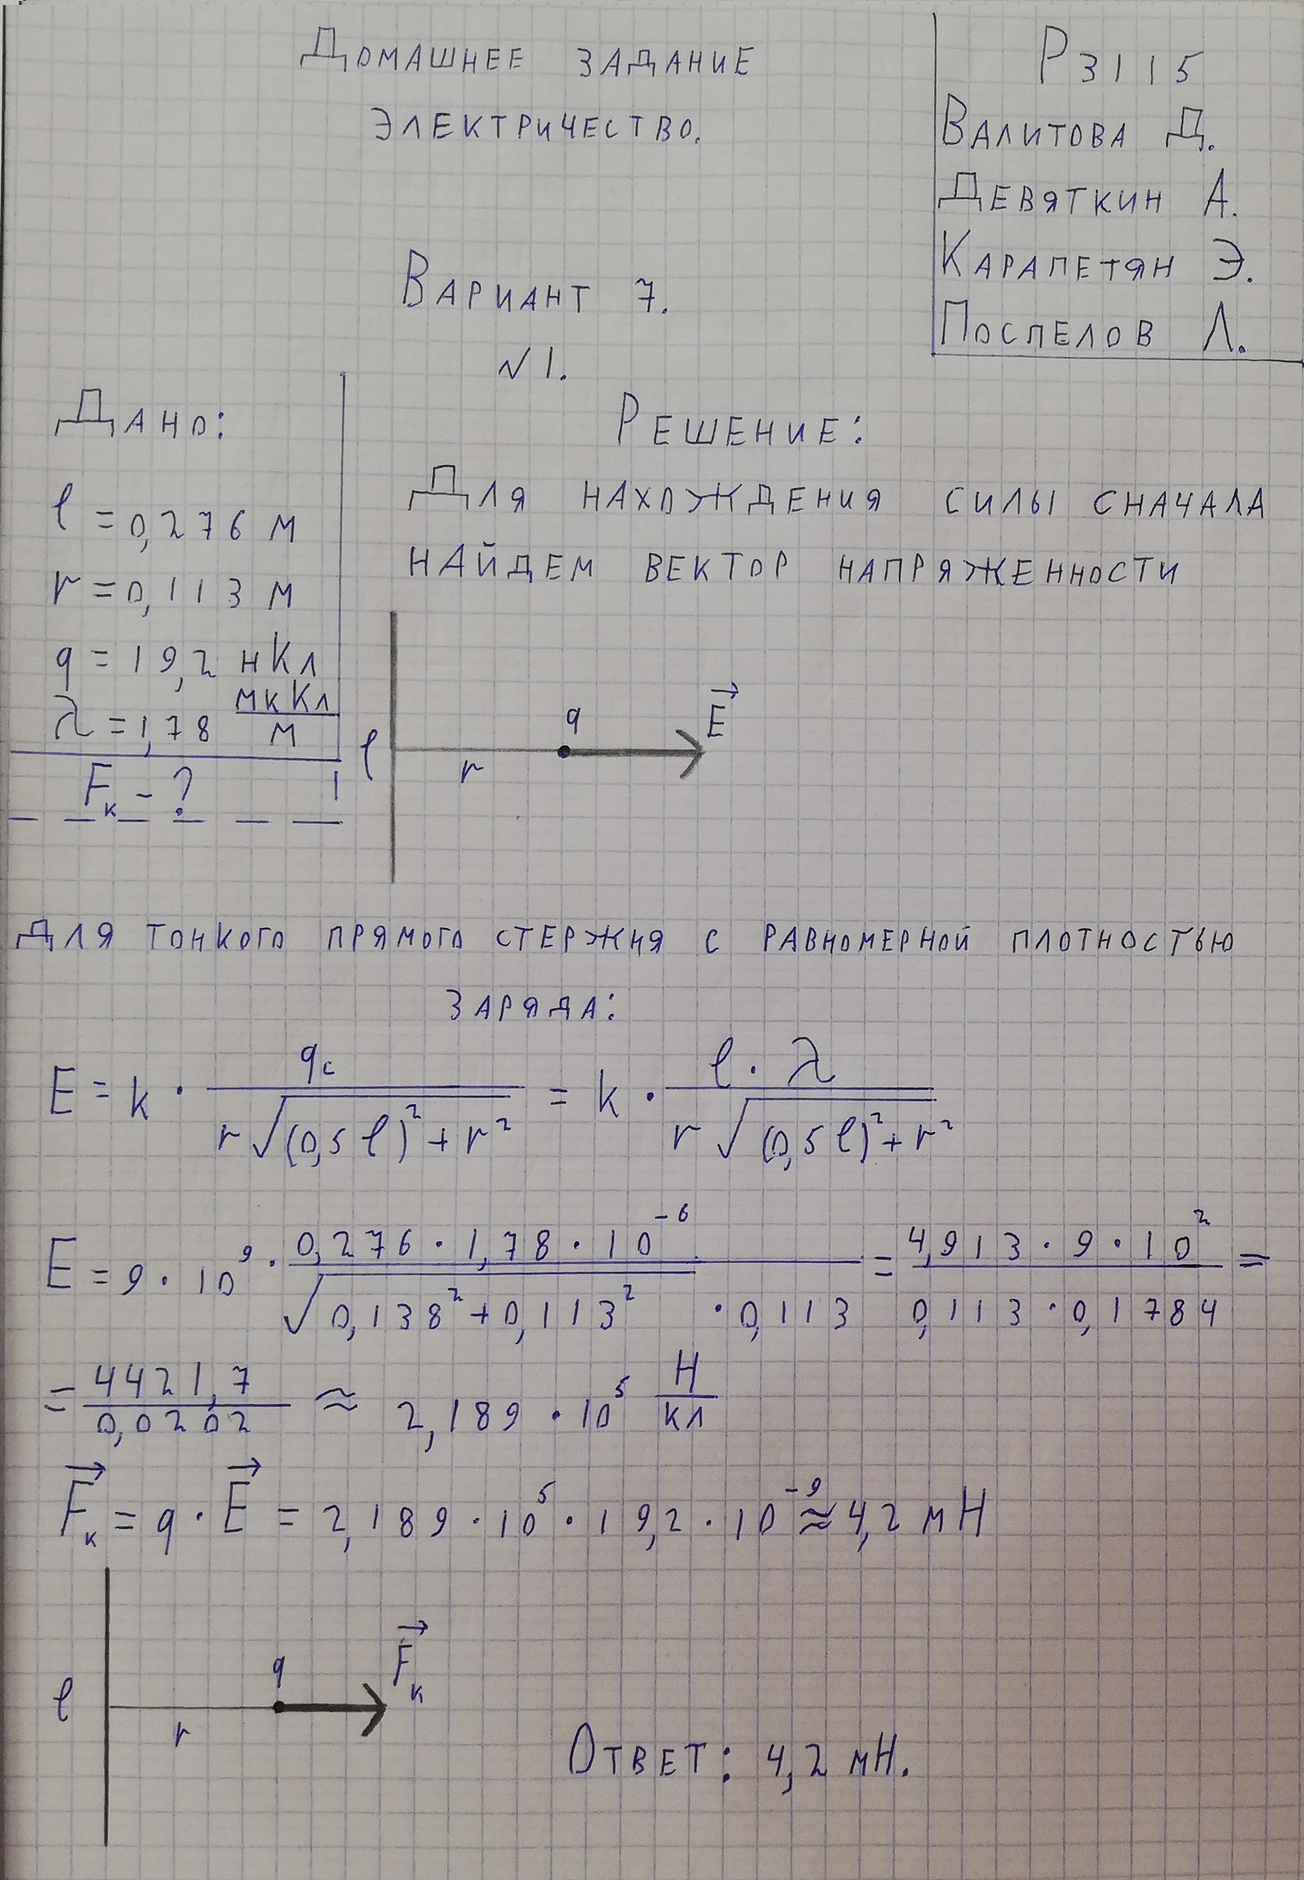 Домашнее задание
электричество.
P3115
Валитова Д.
Девяткин А.
Карапетян Э.
Поспелов Л.
Вариант 7.
√1.
Дано:
l = 0,276 м
r = 0,113 м
q = 19,2 нКл
λ = 1,78 мкКл/м
Fк - ?
Решение:
Для нахождения силы сначала
найдем вектор напряженности
q
E→
l
r
для тонкого прямого стержня с равномерной плотностью
заряда:
E = k · qс / (r √((0,5 l)² + r²)) = k · l · λ / (r √((0,5 l)² + r²))
E = 9 · 10⁹ · 0,276 · 1,78 · 10⁻⁶ / (√(0,138² + 0,113²) · 0,113) = 4,913 · 9 · 10² / (0,113 · 0,1784) =
= 4421,7 / 0,0202 ≈ 2,189 · 10⁵ Н/кл
F→к = q · E→ = 2,189 · 10⁵ · 19,2 · 10⁻⁹ ≈ 4,2 мН
q
F→к
l
r
Ответ: 4,2 мН.